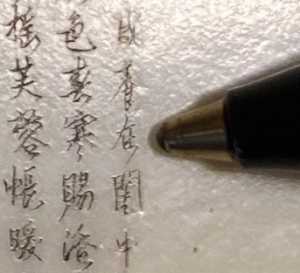 成養在閨中
色春寒賜浴
搖芙蓉帳暖